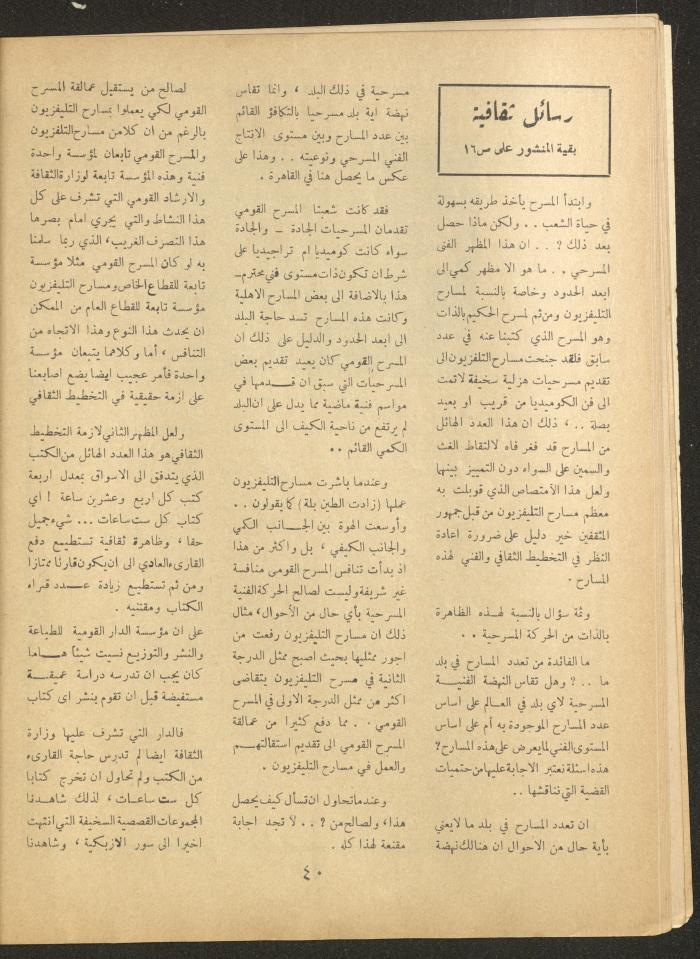 رسائل ثقافية
بقية المنشور على ص ١٦
وابتدأ المسرح يأخذ طريقه بسهولة
في حياة الشعب . . ولكن ماذا حصل
بعد ذلك ؟ . . ان هذا المظهر الفني
المسرحي . . ما هو الا مظهر كمي الى
ابعد الحدود وخاصة بالنسبة لمسارح
التليفزيون ومن ثم لمسرح الحكيم بالذات
وهو المسرح الذي كتبنا عنه في عدد
سابق فلقد جنحت مسارح التلفزيون الى
تقديم مسرحيات هزلية سخيفة لا تمت
الى فن الكوميديا من قريب او بعيد
بصلة . . ، ذلك ان هذا العدد الهائل
من المسارح قد فغر فاه لالتقاط الغث
والسمين على السواء دون التمييز بينها
ولعل هذا الآمتصاص الذي قوبلت به
معظم مسارح التليفزيون من قبل جمهور
المثقفين خير دليل على ضرورة اعادة
النظر في التخطيط الثقافي والفني لهذه
المسارح .
وثمة سؤال بالنسبة لهـذه الظاهرة
بالذات من الحركة المسرحية . .
ما الفائدة من تعدد المسارح في بلد
ما . . ؟ وهل تقاس النهضة الفنيـــة
المسرحية لاي بلد في العـالم على اساس
عدد المسارح الموجودة به أم على اساس
المستوى الفني لما يعرض على هذه المسارح؟
هذه اسئلة نعتبر الاجابة عليها من حتميات
القضية التي نناقشها . .
ان تعدد المسارح في بلد ما لا يعني
بأية حال من الاحوال ان هنالك نهضة
مسرحية في ذلك البلد ، وانما تقاس
نهضة اية بلد مسرحيا بالتكافؤ القائم
بين عدد المسارح وبين مستوى الانتاج
الفني المسرحي ونوعيته . . وهذا على
عكس ما يحصل هنا في القاهرة .
فقد كانت شعبتا المسرح القومي
تقدمان المسرحيات الجادة – والجادة
سواء كانت كوميديا ام تراجيديا على
شرط ان تكون ذات مستوى فني محترم–
هذا بالاضافة الى بعض المسارح الاهلية
وكانت هذه المسارح تسد حاجة البلد
الى ابعد الحدود والدليل على ذلك ان
المسرح القومي كان يعيد تقديم بعض
المسرحيات التي سبق ان قـــدمها في
مواسم فنية ماضية مما يدل على ان البلد
لم يرتفع من ناحية الكيف الى المستوى
الكمي القائم . .
وعندما باشرت مسارح التليفزيون
عملها (زادت الطين بلة) كما يقولون . .
وأوسعت الهوة بين الجـــانب الكمي
والجانب الكيفي ، بل واكثر من هذا
اذ بدأت تنافس المسرح القومي منافسة
غير شريفة وليست لصالح الحركة الفنية
المسرحية بأي حال من الأحوال، مثال
ذلك ان مسارح التليفزيون رفعت من
اجور ممثليها بحيث اصبح ممثل الدرجة
الثانية في مسرح التليفزيون يتقاضى
اكثر من ممثل الدرجة الاولى في المسرح
القومي . . مما دفع كثيرا من عمالقة
المسرح القومي الى تقديم استقالتهـــم
والعمل في مسارح التليفزيون .
وعندما تحاول ان تسأل كيف يحصل
هذا، ولصالح من ؟ . . لا تجد اجابة
مقنعة لهذا كله .
لصالح من يستقيل عمالقة المسرح
القومي لكي يعملوا بمسارح التليفزيون
بالرغم من ان كلا من مسارح التلفزيون
والمسرح القومي تابعان لمؤسسة واحدة
فنية وهذه المؤسسة تابعة لوزارة الثقافة
والارشاد القومي التي تشرف على كل
هذا النشاط والتي يجري امام بصرها
هذا التصرف الغريب، الذي ربما سلمنا
به لو كان المسرح القومي مثلا مؤسسة
تابعة للقطاع الخاص ومسارح التليفزيون
مؤسسة تابعة للقطاع العام من الممكن
ان يحدث هذا النوع وهذا الاتجاه من
التنافس ، أما وكلاهما يتبعان مؤسسة
واحدة فأمر عجيب ايضا يضع اصابعنا
على ازمة حقيقية في التخطيط الثقافي
ولعل المظهر الثاني لازمة التخطيط
الثقافي هو هذا العدد الهائل من الكتب
الذي يتدفق الى الاسواق بمعدل اربعة
كتب كل اربع وعشرين ساعة ! اي
كتاب كل ست ساعات ... شيء جميل
حقا ، وظاهرة ثقافية تستطيـع دفع
القارىء العادي الى ان يكون قارئا ممتازا
ومن ثم تستطيع زيادة عـــدد قراء
الكتاب ومقتنيه .
على ان مؤسسة الدار القومية للطباعة
والنشر والتوزيع نسيت شيئا هـــاما
كان يجب ان تدرسه دراسة عميقـــة
مستفيضة قبل ان تقوم بنشر اى كتاب
فالدار التي تشرف عليها وزارة
الثقافة ايضا لم تدرس حاجة القارىء
من الكتب ولم تحاول ان تخرج كتابا
كل ست ساعـات ، لذلك شاهـدنا
المجموعات القصصية السخيفة التي انتهت
اخيرا الى سور الازبكية ، وشاهدنا
٤٠